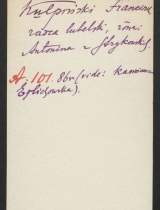 Kulpiński Franciszek
radca lubelski, żona
Antonina z Strykowskich
A. 101. 86v (vide: kamienica